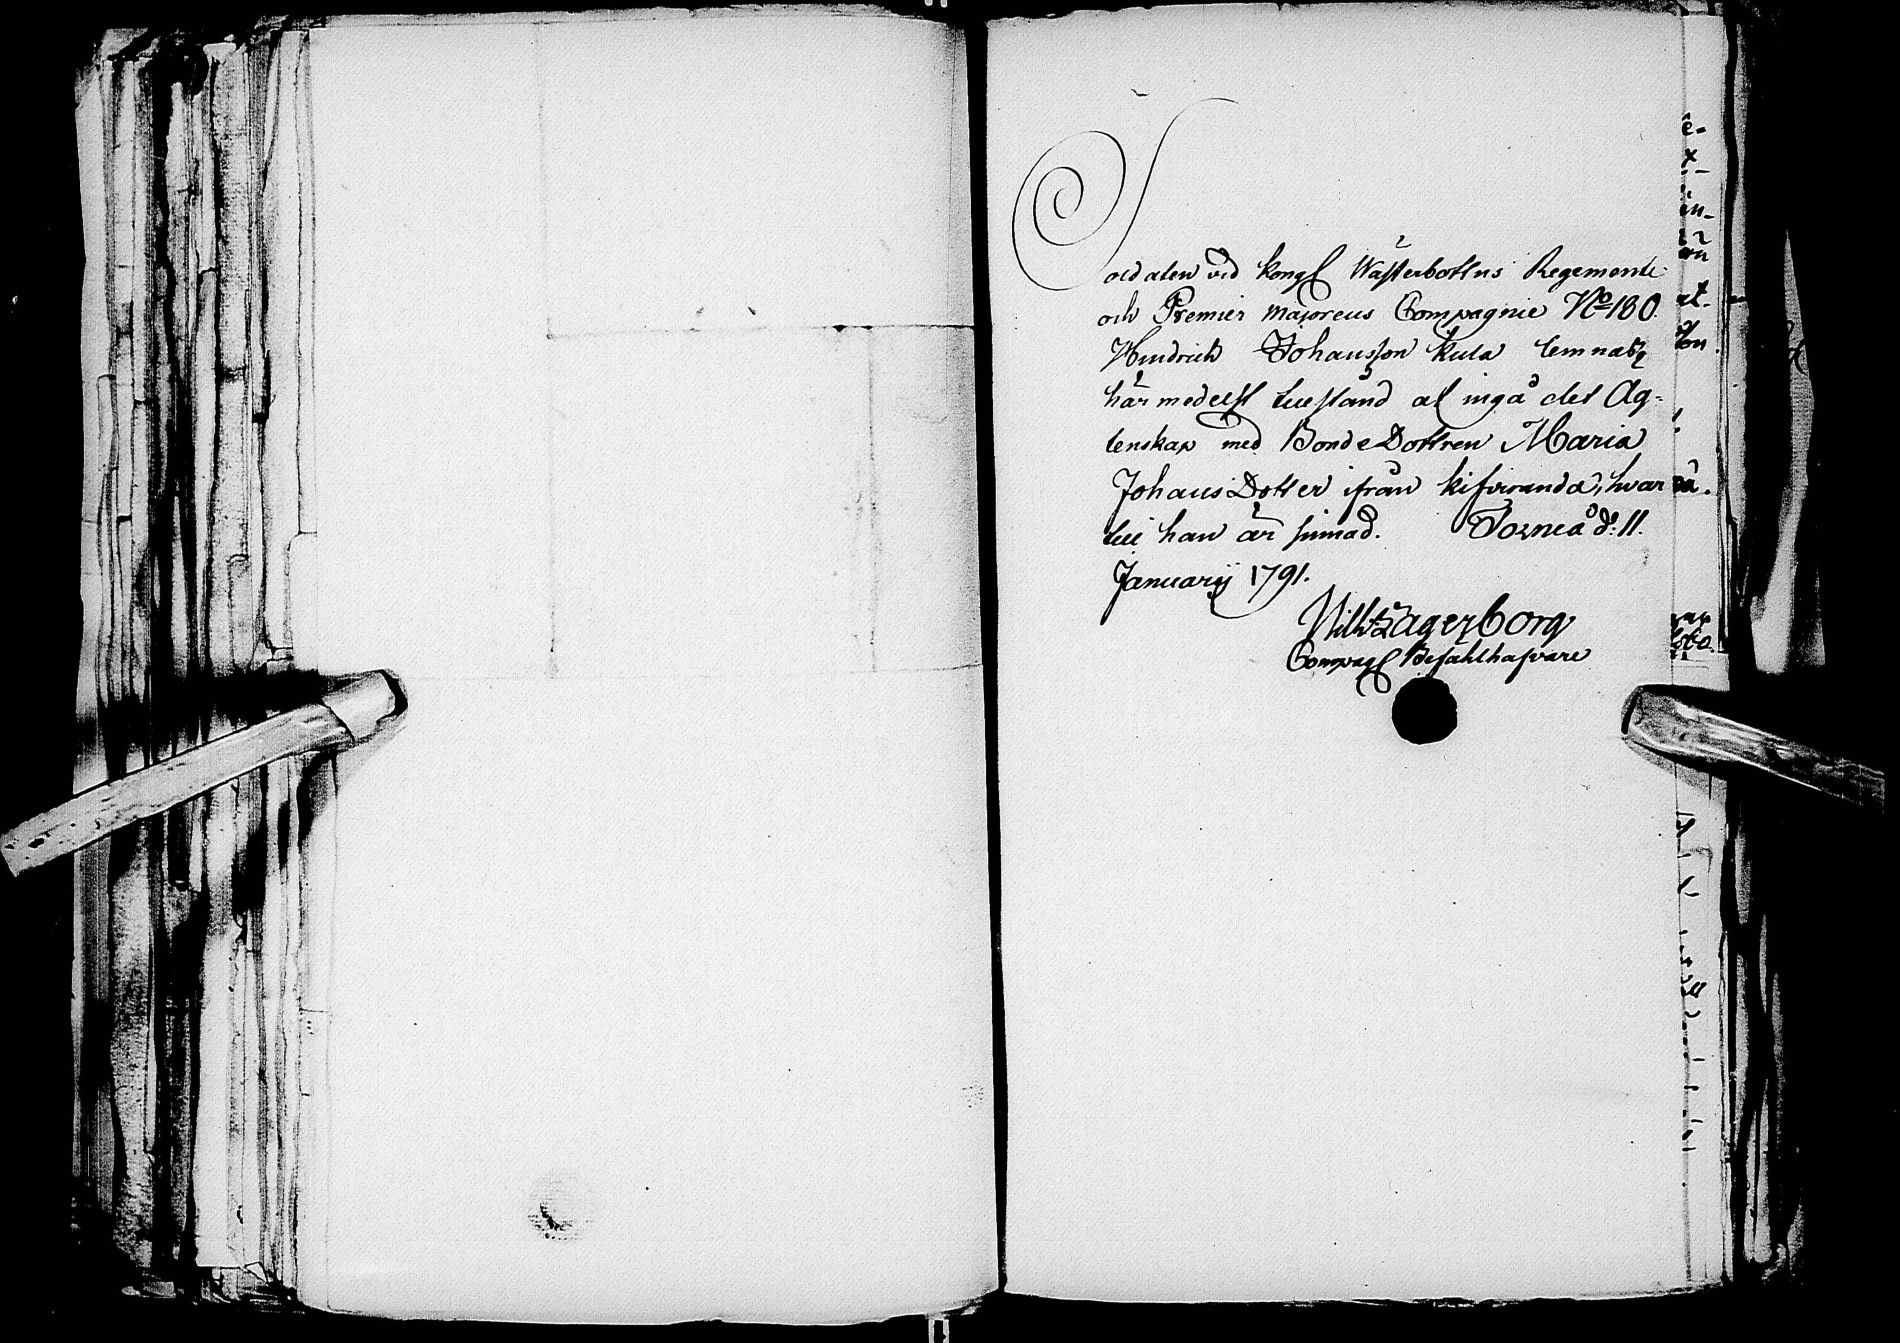 Soldaten vid kongl Wästerbottns Regemente
och Premier Majorens Compagnie No 180.
Hindrich Johansson Kula lemnas
härmedelst tillstånd at ingå det Ag=
tenskap med Bonde Dottren Maria
Johans Dotter ifrån kifviranda, hvar
till han är sinnad. Torneå d: 11.
Januarij 1791.
Wilh: Lagerborg
Compagl Befählhafvare